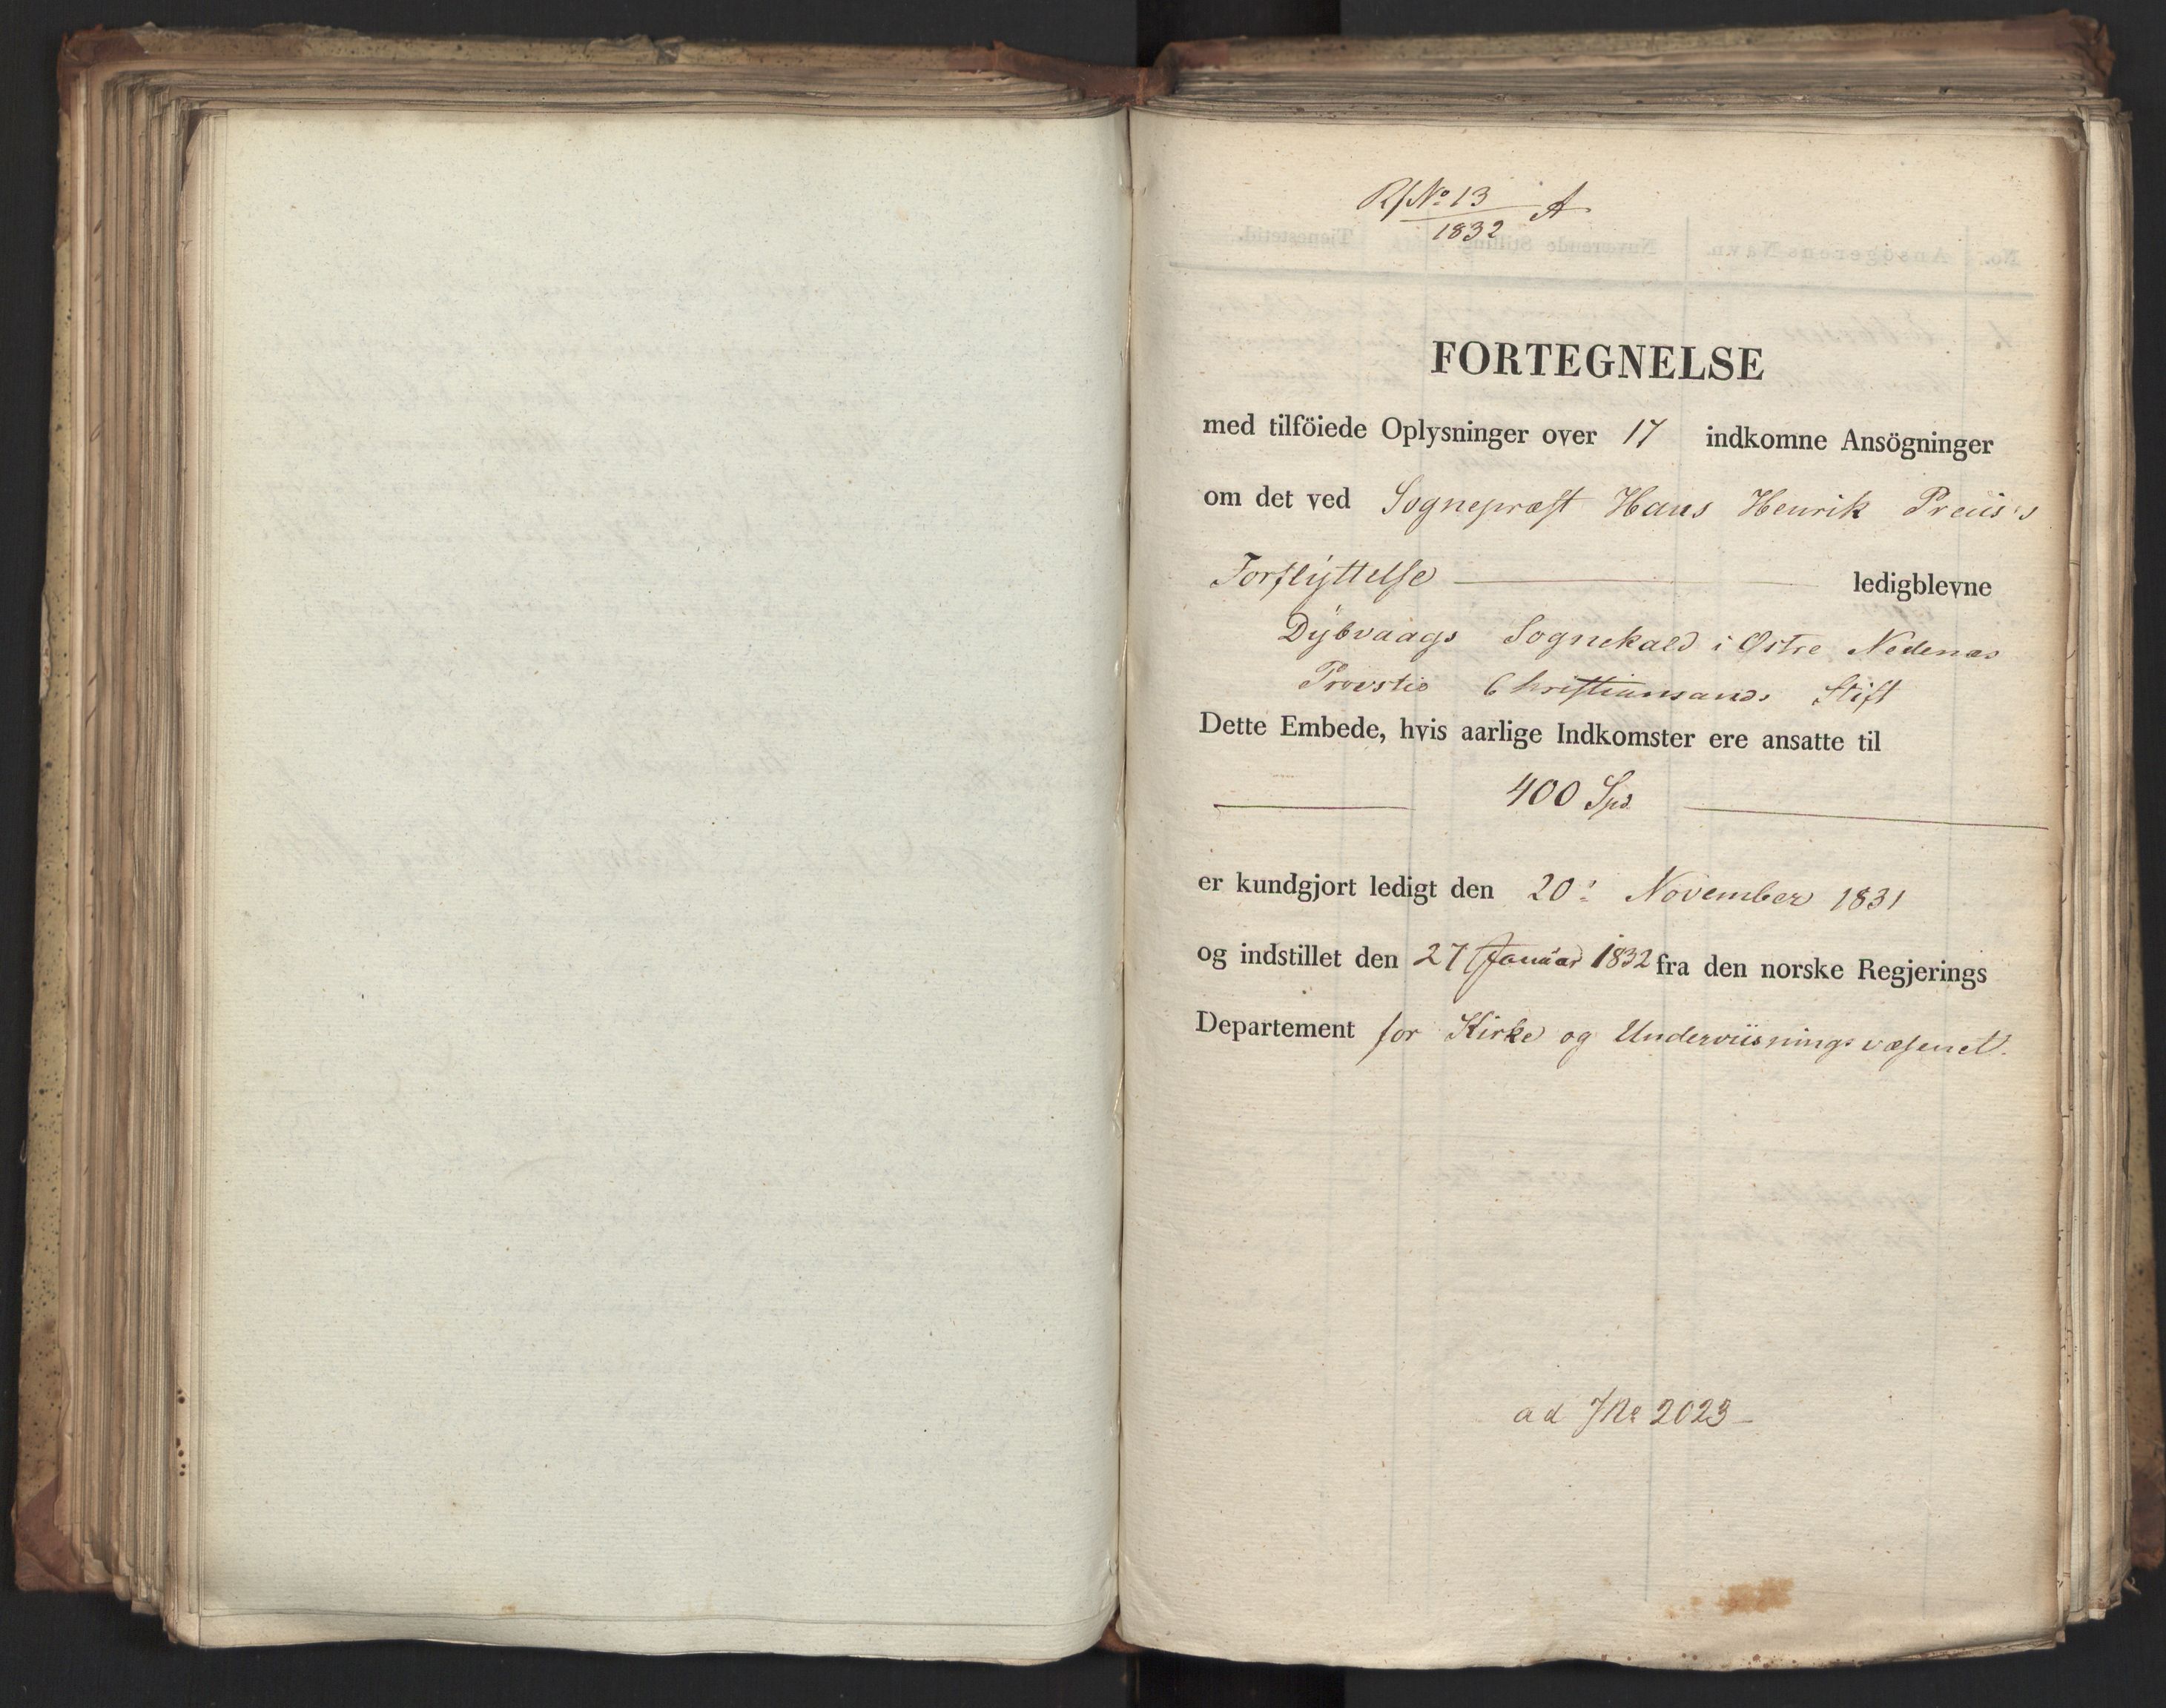 R/No 13 A
1832
FORTEGNELSE
med tilföiede Oplysninger over 17 indkomne Ansögninger
om det ved Sognepræst Hans Henrik Preus's
Forflyttelse ledigblevne
Dybvaags Sognekald i Østre Nedenæs
Provstie Christiansands Stift
Dette Embede, hvis aarlige Indkomster ere ansatte til
400 Spd.
er kundgjort ledigt den 20: November 1831
og indstillet den 27 Januar 1832 fra den norske Regjerings
Departement for Kirke og Underviisningsvæsenet.
ad JNo 2023